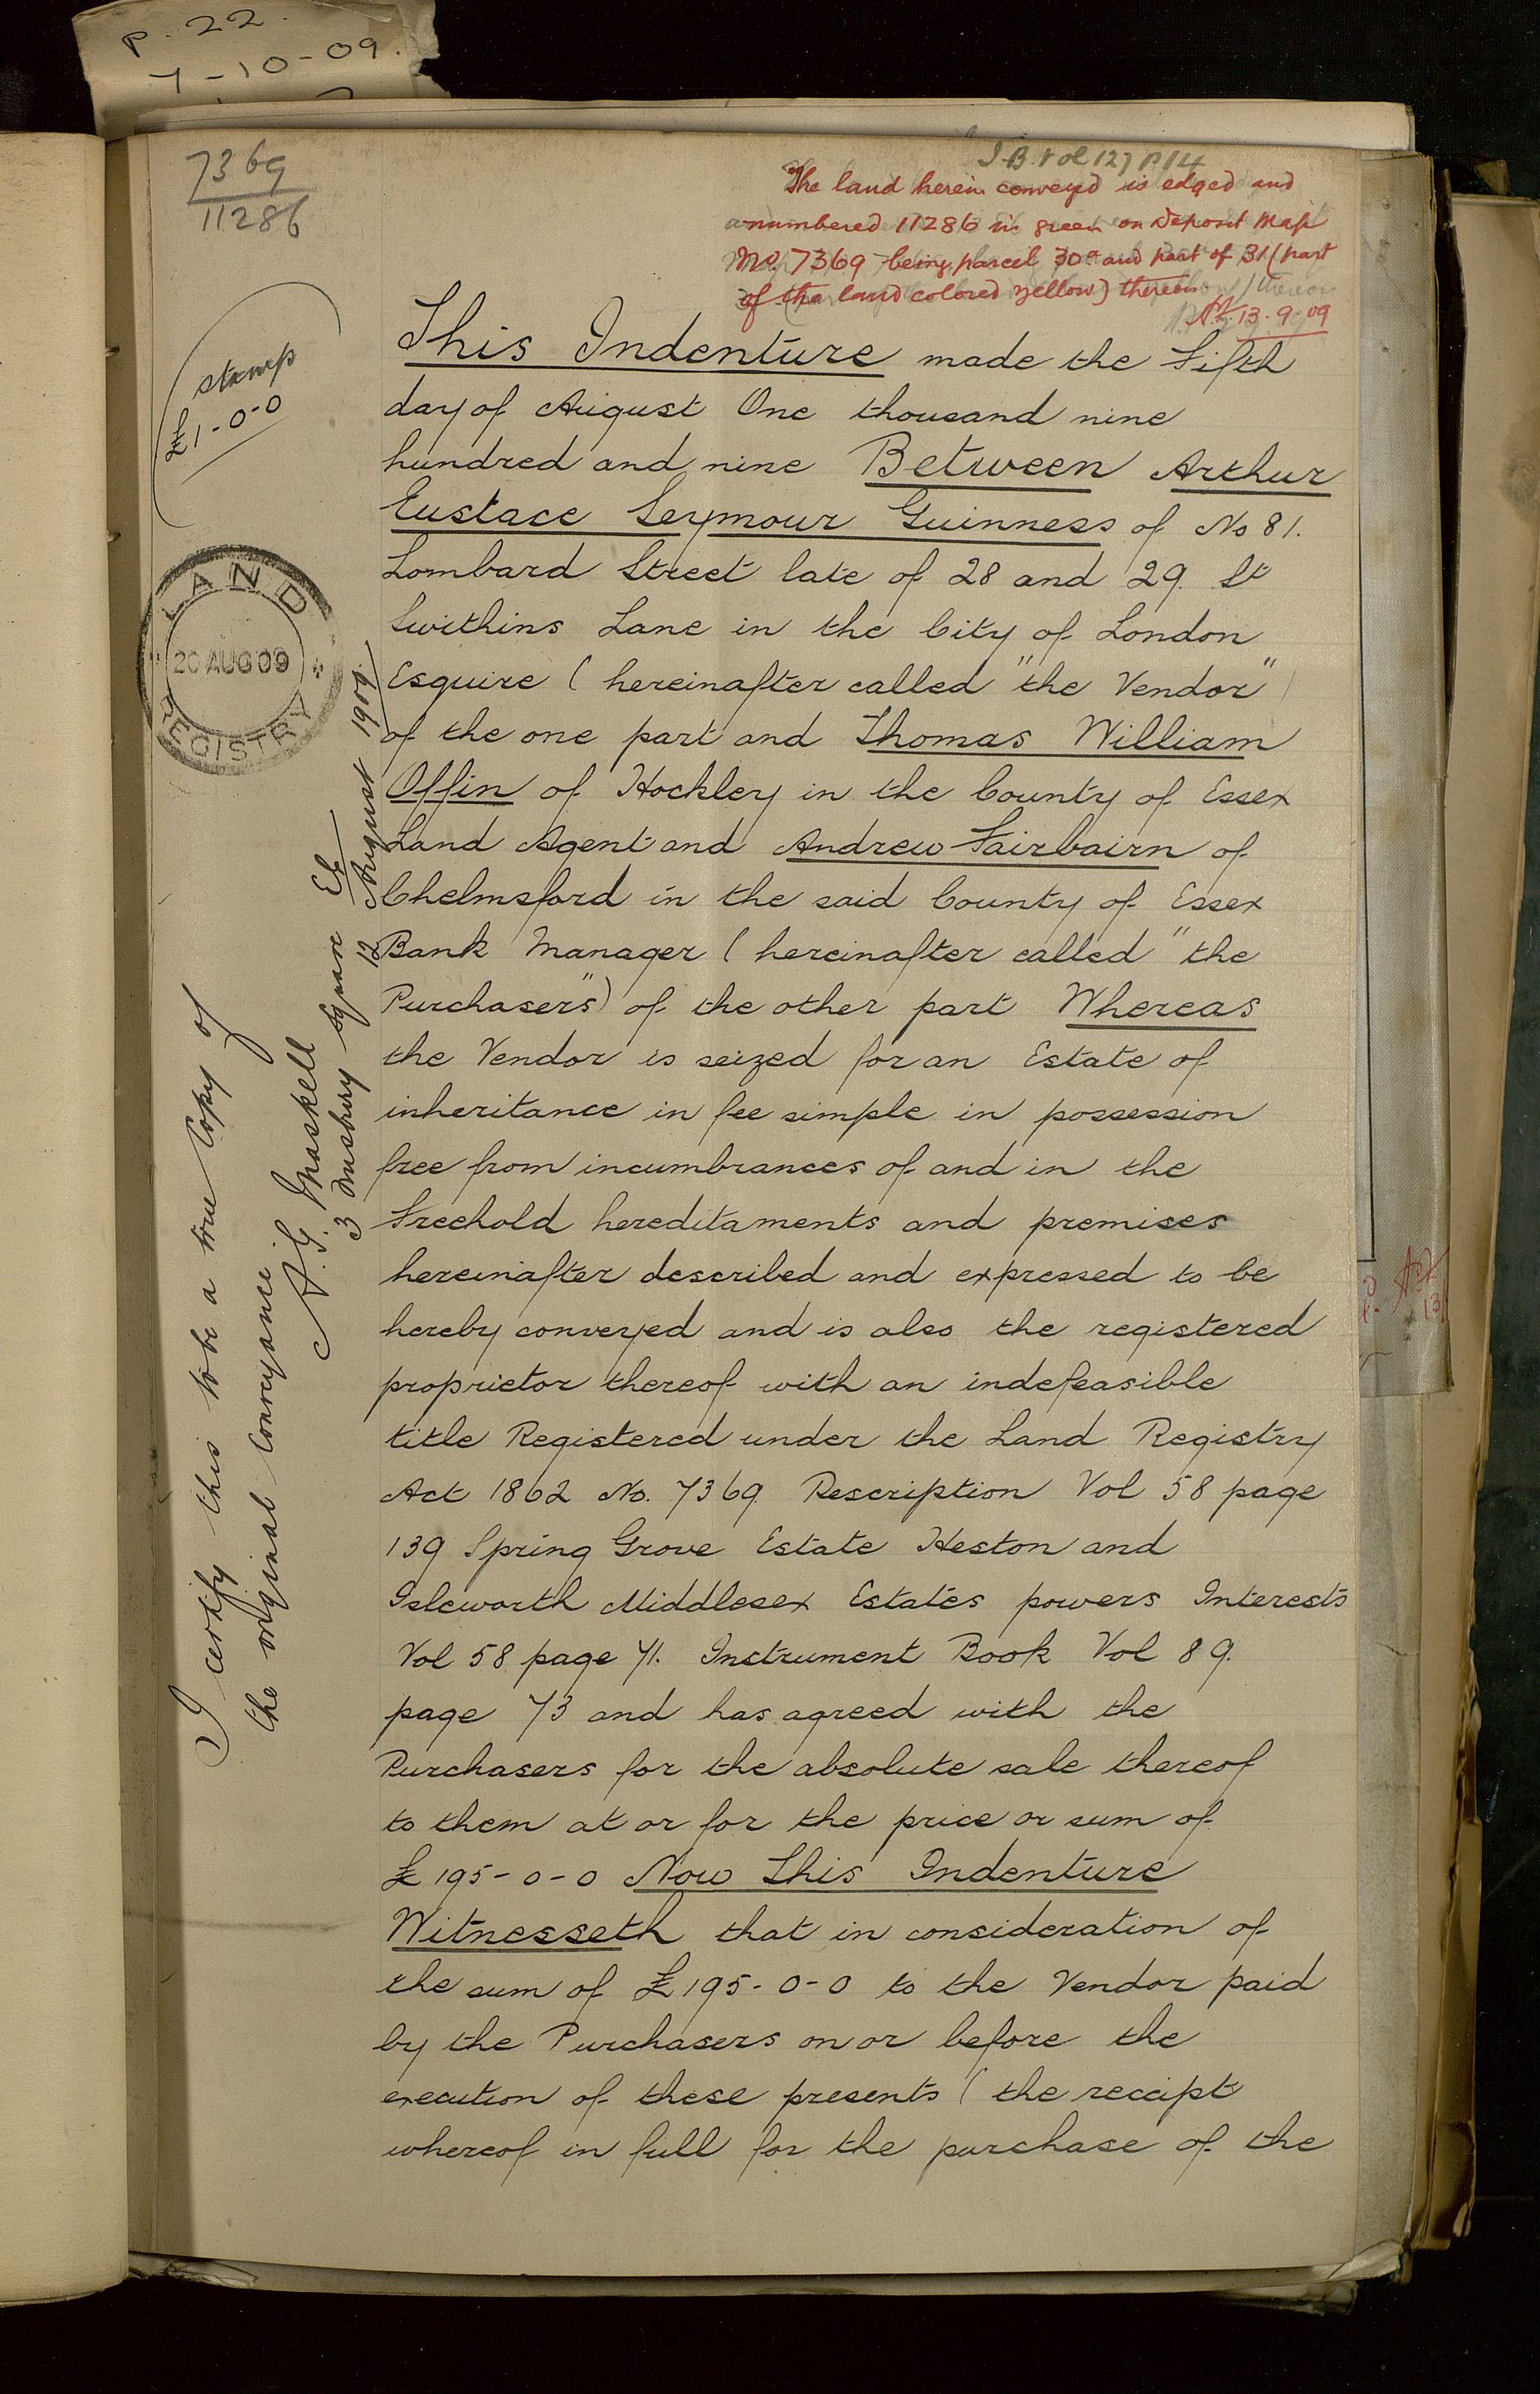 P. 22.
7-10-09.
7369
11286
I.B. Vol 127 P 14
The land herein conveyed is edged and
numbered 11286 in green on Deposit Map
No. 7369 being parcel 30a and part of 31 (part
of the land colored yellow) thereon
13.9.09
stamp
£1-0-0
LAND
20 AUG 09
REGISTRY
This Indenture made the Fifth
day of August One thousand nine
hundred and nine Between Arthur
Eustace Seymour Guinness of No 81.
Lombard Street late of 28 and 29. St
Swithins Lane in the City of London
Esquire (hereinafter called "the Vendor")
of the one part and Thomas William
Offin of Hockley in the County of Essex
Land Agent and Andrew Fairbairn of
Chelmsford in the said County of Essex
Bank Manager (hereinafter called "the
Purchasers") of the other part Whereas
the Vendor is seized for an Estate of
inheritance in fee simple in possession
free from incumbrances of and in the
Freehold hereditaments and premises
hereinafter described and expressed to be
hereby conveyed and is also the registered
proprietor thereof with an indefeasible
title Registered under the Land Registry
Act 1862 No. 7369 Description Vol 58 page
139 Spring Grove Estate Heston and
Isleworth Middlesex Estates powers Interests
Vol 58 page 71. Instrument Book Vol 89.
page 73 and has agreed with the
Purchasers for the absolute sale thereof
to them at or for the price or sum of
£195-0-0 Now This Indenture
Witnesseth that in consideration of
the sum of £195-0-0 to the Vendor paid
by the Purchasers on or before the
execution of these presents (the receipt
whereof in full for the purchase of the
I certify this to be a true Copy of
the original Conveyance
A. G. Maskell
3 Finsbury Square EC
12 August 1909.